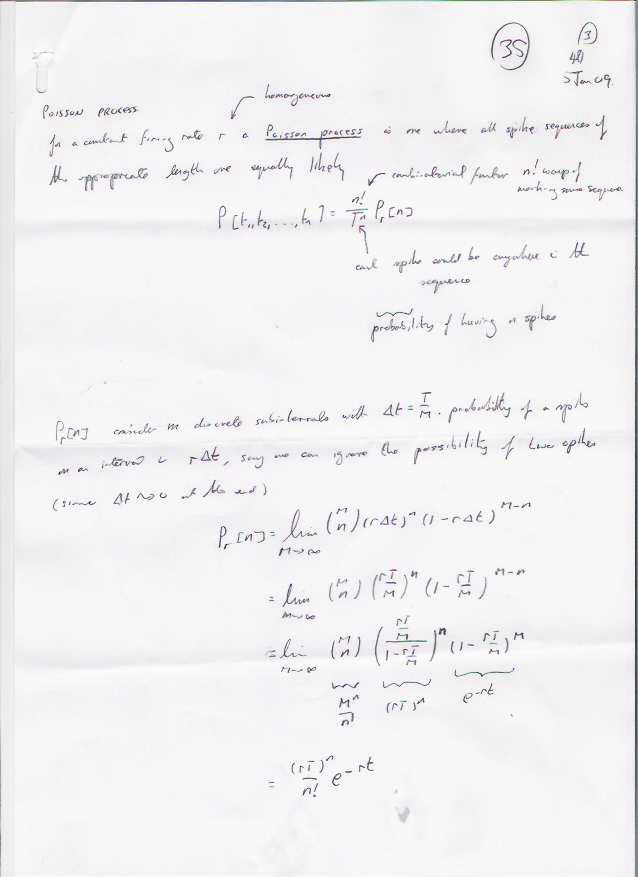 35
3
481
5 Jan 09
POISSON PROCESS
homogeneous
for a constant firing rate r a Poisson process is one where all spike sequences of
the appropriate length are equally likely
combinatorial factor n! ways of
making same sequence
P[t₁,t₂,...,tₙ] = n!/Tⁿ Pᵣ[n]
each spike could be anywhere in the
sequence
probability of having n spikes
Pᵣ[n] consider M discrete subintervals with Δt = T/M. probability of a spike
in an interval is rΔt, say we can ignore the possibility of two spikes
(since Δt→0 at the end)
Pᵣ[n] = lim M→∞ (M n) (rΔt)ⁿ (1-rΔt)^(M-n)
= lim M→∞ (M n) (rT/M)ⁿ (1-rT/M)^(M-n)
= lim M→∞ (M n) ((rT/M)/(1-rT/M))ⁿ (1-rT/M)^M
Mⁿ/n! (rT)ⁿ e^(-rt)
= (rT)ⁿ/n! e^(-rt)